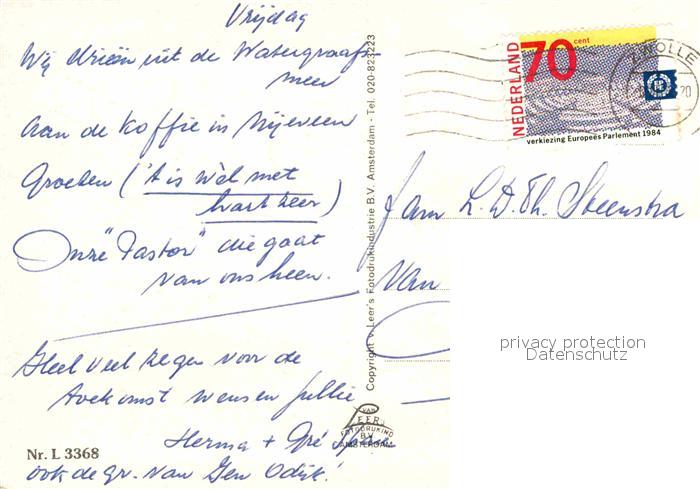 Vrijdag
Wij drieën uit de Watergraafs-
meer
aan de koffie in Nijeveen
Groeten ('t is wèl met
hartzeer)
Onze "Pastor" die gaat
van ons heen.
Heel veel zegen voor de
toekomst wensen jullie
Herma + Gré
ook de gr. van Gem Odijk!
Nr. L 3368
Copyright v. Leer's Fotodrukindustrie B.V. Amsterdam - Tel. 020-823223
VAN
LEER
FOTODRUKIND
B.V.
AMSTERDAM
NEDERLAND
70 cent
verkiezing Europees Parlement 1984
ZWOLLE
20
Fam L. D. Th. Steenstra
van
privacy protection
Datenschutz